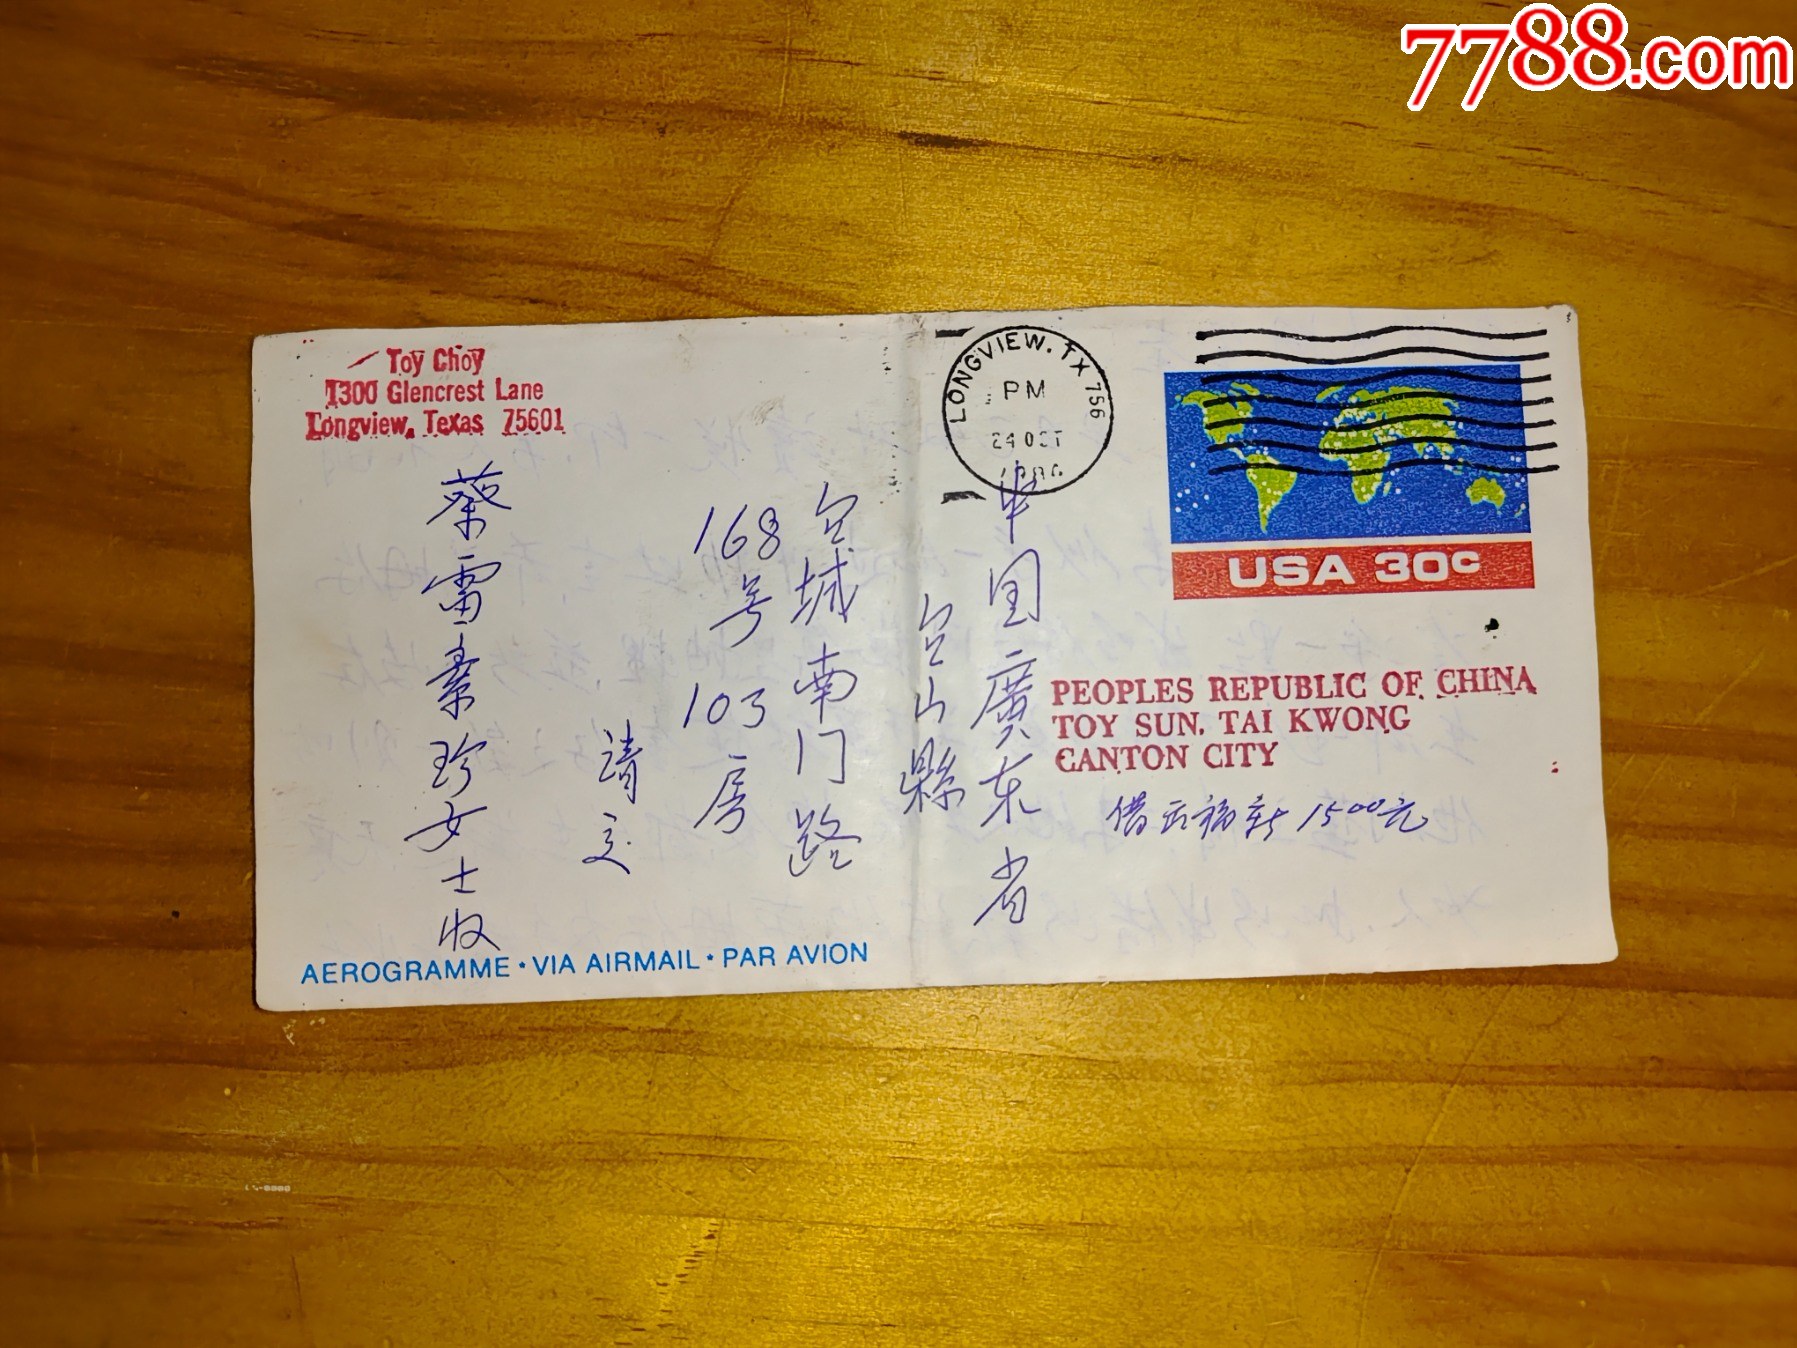 7788.com
Toy Choy
1300 Glencrest Lane
Longview, Texas 75601
LONGVIEW, TX 756
PM
24 OCT
USA 30c
PEOPLES REPUBLIC OF CHINA
TOY SUN, TAI KWONG
CANTON CITY
1500元
中国廣东省
台山縣
台城南门路
168号 103房
请交
蔡雷素珍女士收
AEROGRAMME • VIA AIRMAIL • PAR AVION